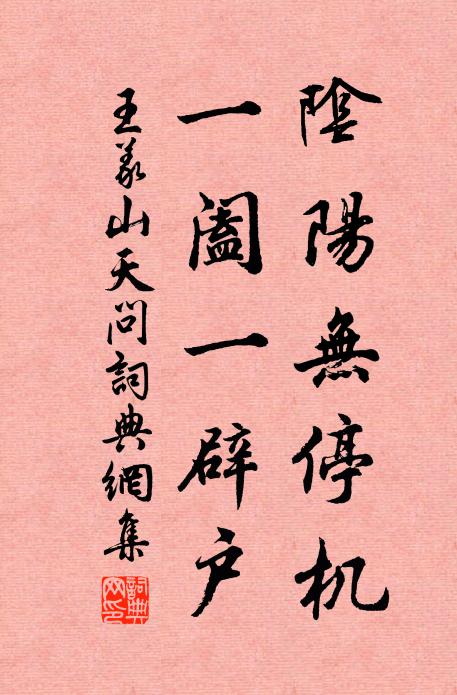 陰陽無停机
一闔一辟户
王義山天問詞典網集
詞典網印